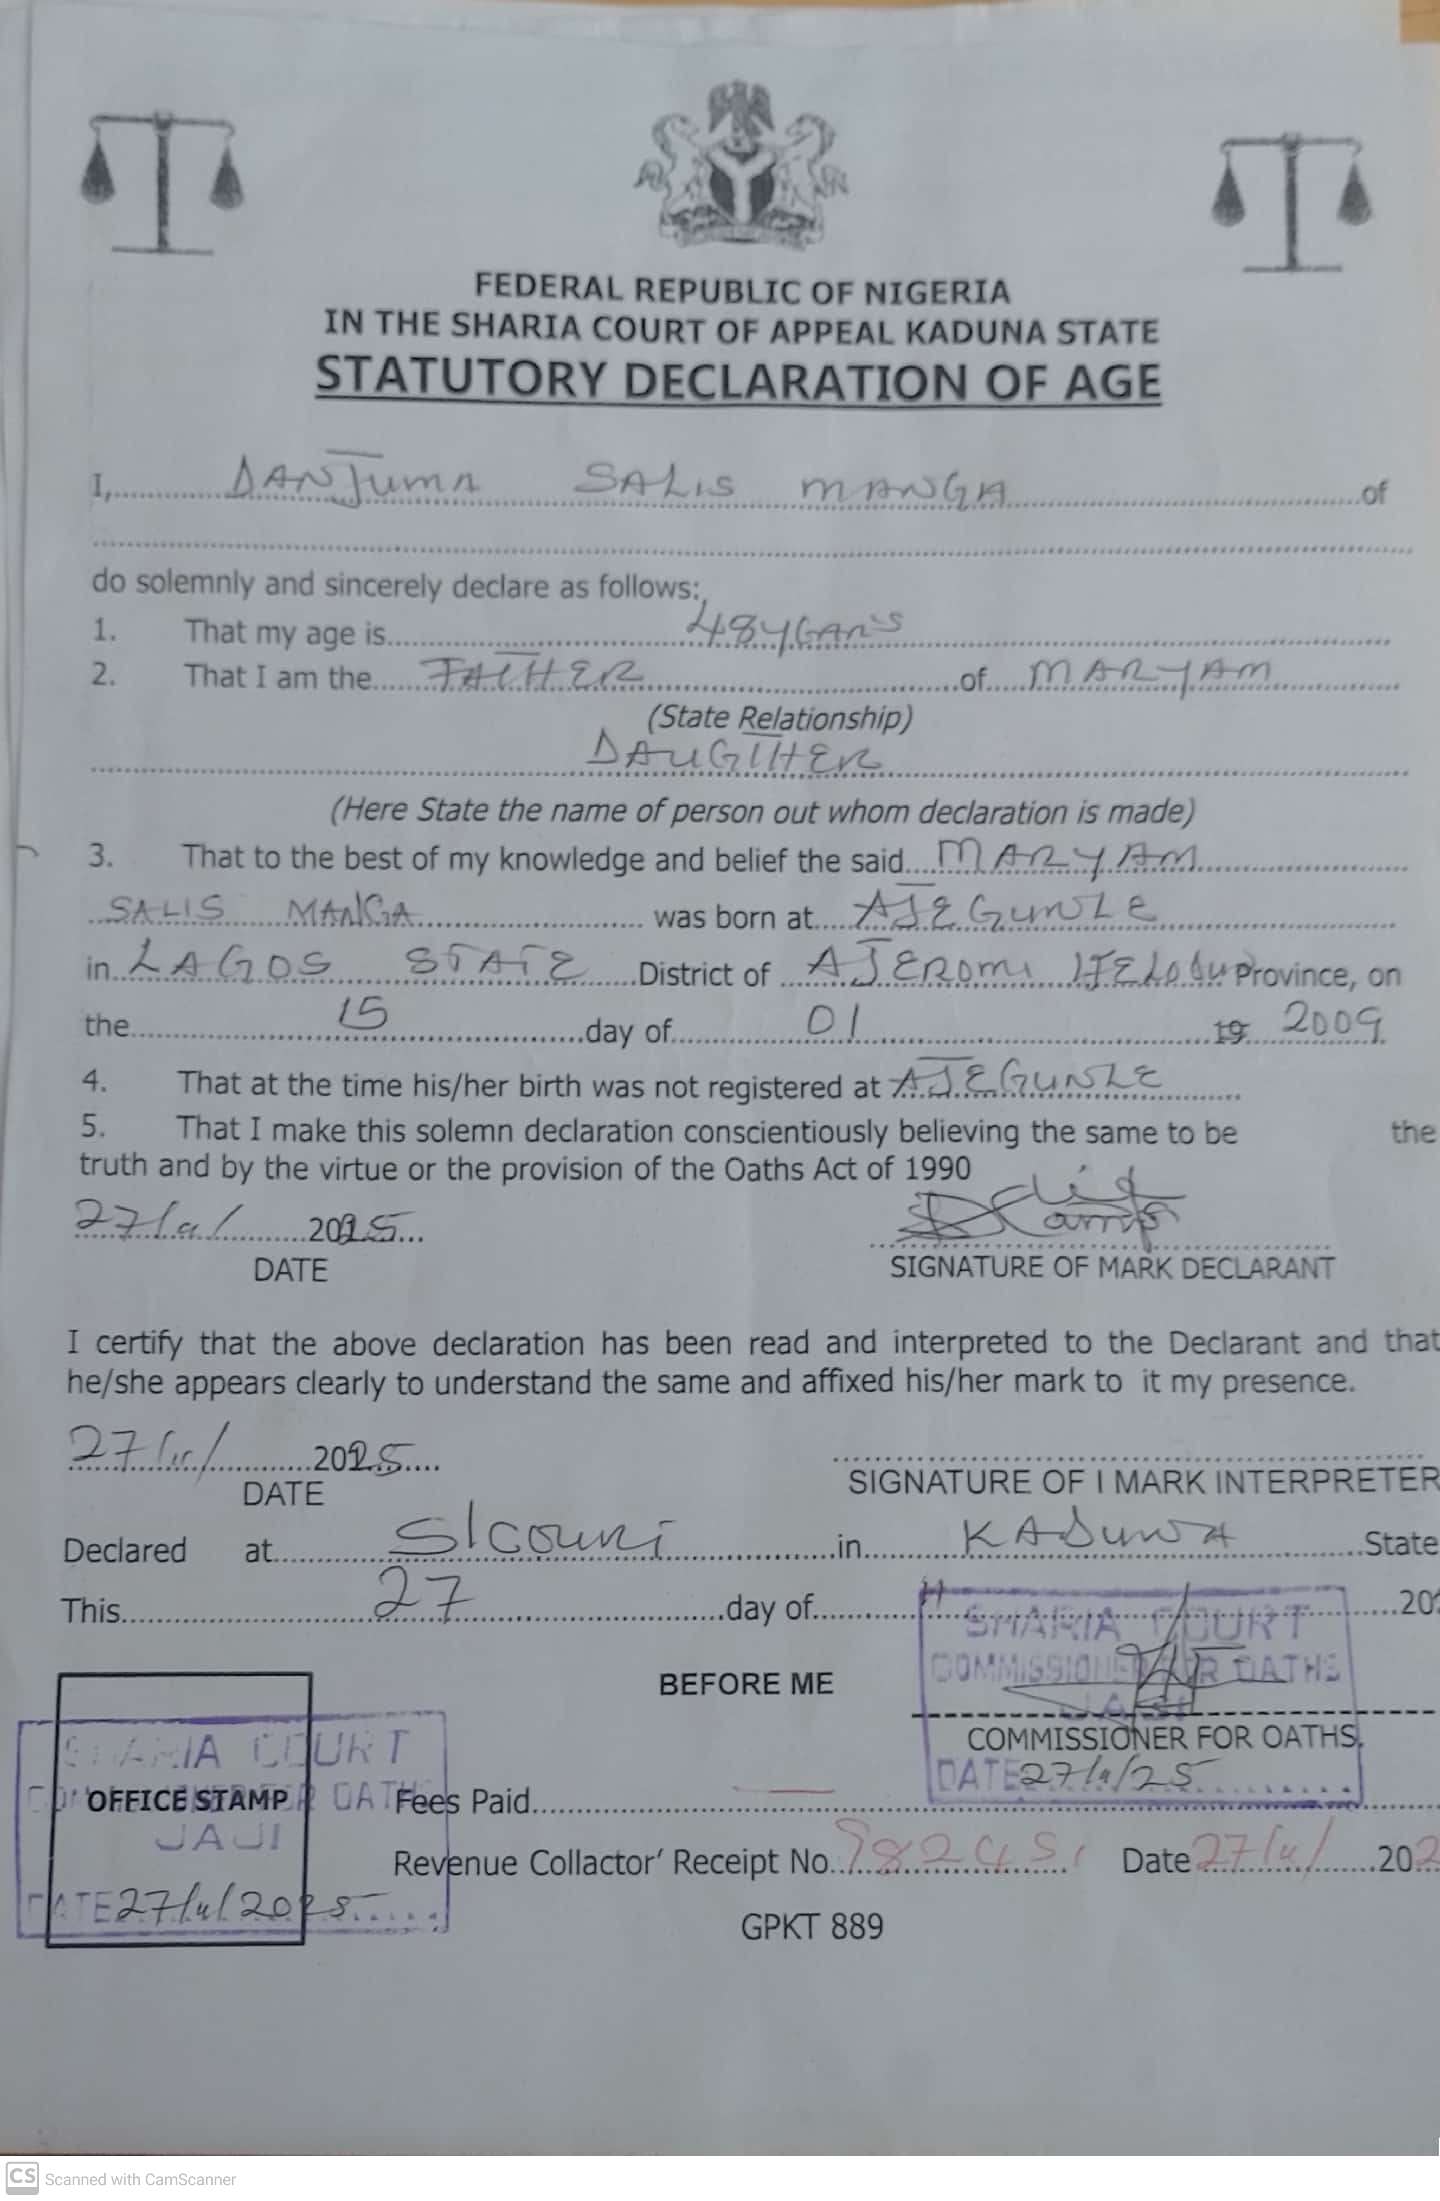 FEDERAL REPUBLIC OF NIGERIA
IN THE SHARIA COURT OF APPEAL KADUNA STATE
STATUTORY DECLARATION OF AGE
I, DANJUMA SALIS MANGA of
do solemnly and sincerely declare as follows:
1. That my age is 48 YEARS
2. That I am the FATHER of MARYAM
(State Relationship)
DAUGHTER
(Here State the name of person out whom declaration is made)
3. That to the best of my knowledge and belief the said MARYAM
SALIS MANGA was born at AJEGUNLE
in LAGOS STATE District of AJEROMI IFELODU Province, on
the 15 day of 01 19 2009
4. That at the time his/her birth was not registered at AJEGUNLE
5. That I make this solemn declaration conscientiously believing the same to be the
truth and by the virtue or the provision of the Oaths Act of 1990
27/11/ 2025
DATE
SIGNATURE OF MARK DECLARANT
I certify that the above declaration has been read and interpreted to the Declarant and that
he/she appears clearly to understand the same and affixed his/her mark to it my presence.
27/11/ 2025
DATE
SIGNATURE OF I MARK INTERPRETER
Declared at in KADUNA State
This 27 day of 11 20
SHARIA COURT
COMMISSIONER FOR OATHS
JAJI
BEFORE ME
COMMISSIONER FOR OATHS
DATE 27/11/25
SHARIA COURT
COMMISSIONER FOR OATHS
OFFICE STAMP
JAJI
DATE 27/11/2025
Fees Paid
Revenue Collactor' Receipt No. Date 27/11/ 202
GPKT 889
CS Scanned with CamScanner